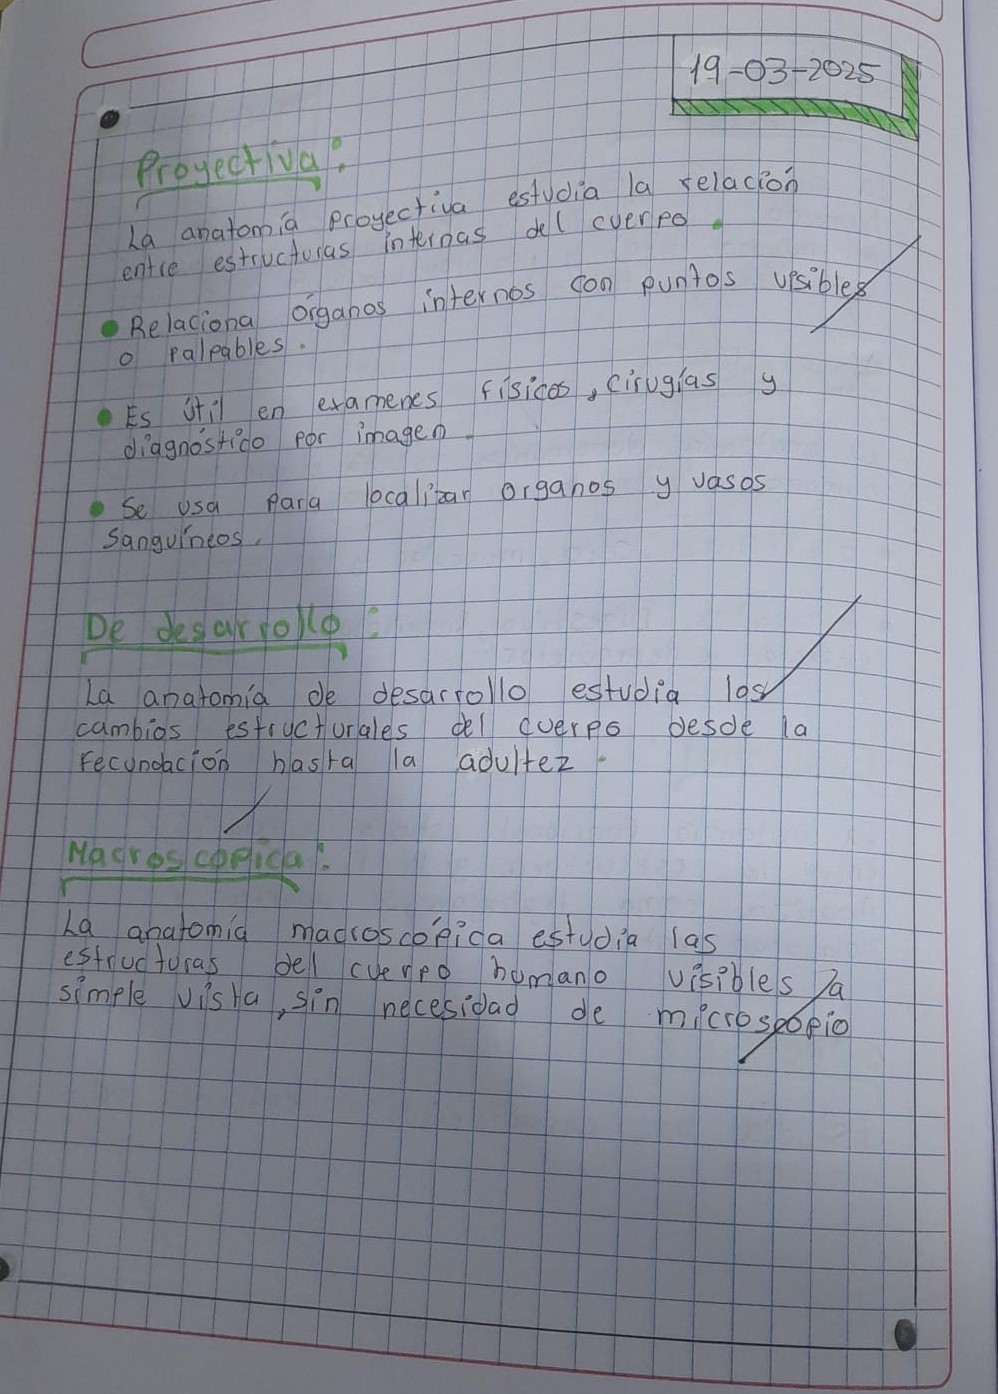 19-03-2025
Proyectiva:
La anatomía proyectiva estudia la relación
entre estructuras internas del cuerpo.
• Relaciona órganos internos con puntos visibles
o palpables.
• Es útil en examenes físicos, cirugías y
diagnóstico por imagen.
• Se usa para localizar organos y vasos
sanguíneos.
De desarrollo:
La anatomía de desarrollo estudia los
cambios estructurales del cuerpo desde la
fecundación hasta la adultez.
Macroscopica:
La anatomía macroscópica estudia las
estructuras del cuerpo humano visibles a
simple vista, sin necesidad de microscopio